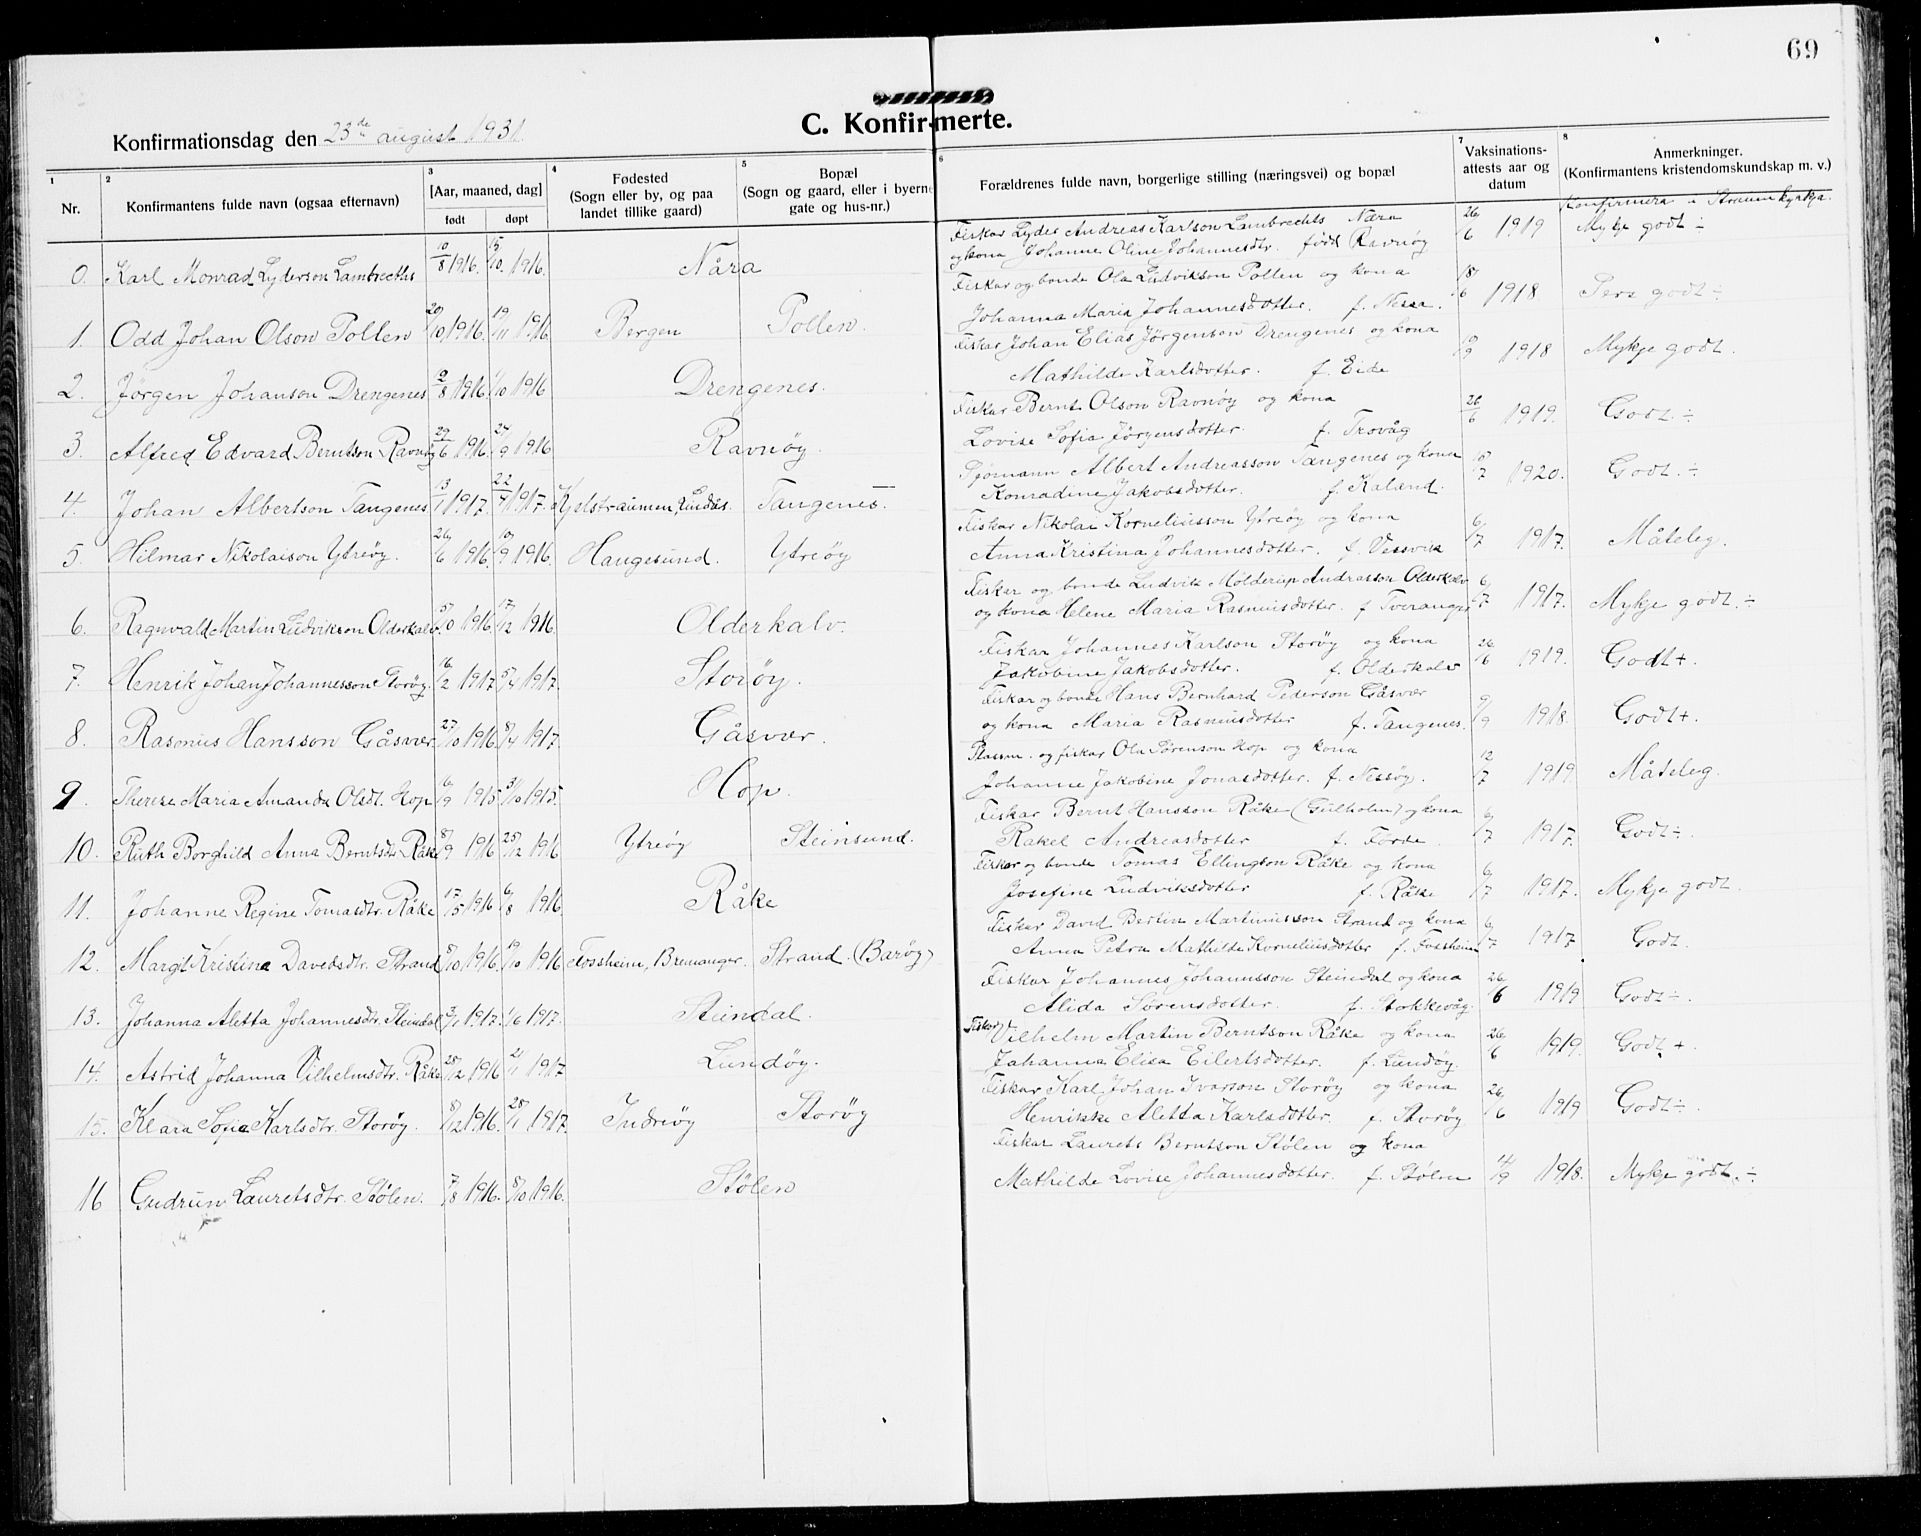 69
C. Konfirmerte.
Konfirmationsdag den 23de august 1931.
1 Nr.
2 Konfirmantens fulde navn (ogsaa efternavn)
3 [Aar, maaned, dag] født døpt
4 Fødested (Sogn eller by, og paa landet tillike gaard)
5 Bopæl (Sogn og gaard, eller i byerne gate og hus-nr.)
6 Forældrenes fulde navn, borgerlige stilling (næringsvei) og bopæl
7 Vaksinations-attests aar og datum
8 Anmerkninger. (Konfirmantens kristendomskundskap m. v.)
Konfirmera i Straumen kyrkja.
0. Karl Monrad Lyderson Lambrechts 10/8 1916. 15/10. 1916. Nåra Fiskar Lyder Andreas Karlson Lambrechts Nåra 26/6 1919 Mykje godt ÷
og kona Johanne Oline Johannesdtr. född Ravnöy
1. Odd Johan Olson Pollen 20/10 1916. 19/11 1916. Bergen Pollen. Fiskar og bonde Ola Ludvikson Pollen og kona 18/6 1918 Sers godt ÷
Johanna Maria Johannesdotter. f. Nessa.
2. Jörgen Johanson Drengenes 9/8 1916. 1/10 1916 Drengenes. Fiskar Johan Elias Jörgenson Drengenes og kona 10/9 1918 Mykje godt.
Mathilde Karlsdotter. f. Eide
3. Alfred Edvard Berntson Ravnöy 29/6 1916. 24/9 1916 Ravnöy. Fiskar Bernt Olson Ravnöy og kona 26/6 1919. Godt. ÷
Lovise Sofia Jörgensdotter. f. Trovåg
4. Johan Albertson Tangenes 13/1 1917. 22/4 1917. Kjelstraumen, Lindås. Tangenes. Sjömann Albert Andreasson Tangenes og kona 18/7 1920. Godt. ÷
Konradine Jakobsdotter. f. Kaland.
5. Hilmar Nikolaison Ytreöy. 26/6 1916. 10/9 1916. Haugesund. Ytreöy Fiskar Nikolai Korneliusson Ytreöy og kona 6/7 1917. Måteleg.
Anna Kristina Johannesdotter. f. Vessvik
6. Ragnvald Martin Ludvikson Olderkalv. 5/10 1916. 17/12 1916. Olderkalv. Fiskar og bonde Ludvik Mölderup Andrasson Olderkalv 6/7 1917. Mykje godt. ÷
og kona Helene Maria Rasmusdotter. f Tveranger
7. Henrik Johan Johannesson Storöy. 16/2 1917. 5/4 1917. Storöy. Fiskar Johannes Karlson Storöy og kona 26/6 1919. Godt+.
Jakobine Jakobsdotter. f. Olderkalv
8. Rasmus Hansson Gåsvær 27/10 1916. 8/4 1917. Gåsvær. Fiskar og bonde Hans Bernhard Pederson Gåsvær 9/9 1918. Godt+.
og kona Maria Rasmusdotter f. Tangenes.
9. Therese Maria Amanda Olsdt. Hop 6/9 1915 31/10 1915. Hop. Plassm. og fiskar Ola Sörenson Hop og kona 12/7 1919. Måteleg.
Johanne Jakobine Jonasdotter. f. Nessöy.
10. Ruth Borghild Anna Berntsdtr Råke 8/9 1916 25/12 1916 Ytreöy Steinsund. Fiskar Bernt Hansson Råke (Gulholm) og kona 6/7 1917. Godt÷.
Rakel Andreasdotter f. Förde.
11. Johanne Regine Tomasdtr. Råke 17/5 1916 6/8 1916. Råke Fiskar og bonde Tomas Ellingson Råke og kona 6/7 1917. Mykje godt.
Josefine Ludviksdotter f. Råke
12. Margit Kristina Davedsdtr. Strand 8/10 1916. 19/10 1916 Fossheim, Bremanger. Strand. (Baröy) Fiskar David Bertin Martinusson Strand og kona 6/7 1917 Godt.
Anna Petra Mathilde Korneliusdotter f. Fossheim
13. Johanna Aletta Johannesdtr. Steindal 3/1 1917. 1/6 1917. Steindal. Fiskar Johannes Johannsson Steindal og kona 26/6 1919 Godt÷.
Alida Sörensdotter. f. Stokkevåg.
14. Astrid Johanna Vilhelmsdtr. Råke 28/12 1916 21/1 1917 Lundöy. Fiskar Vilhelm Martin Berntson Råke og kona 26/6 1919. Godt+.
Johanna Elisa Eilertsdotter. f. Lundöy.
15. Klara Sofie Karlsdtr. Storöy. 8/12 1916. 28/1 1917. Indreöy Storöy Fiskar Karl Johan Ivarson Storöy og kona 26/6 1919 Godt÷.
Henrikke Aletta Karlsdotter. f. Storöy
16 Gudrun Lauretsdtr. Stölen. 7/8 1916. 8/10 1916. Stölen Fiskar Laurets Berntson Stölen og kona 14/9 1918. Mykje godt. ÷
Mathilde Lovise Johannesdotter. f. Stölen